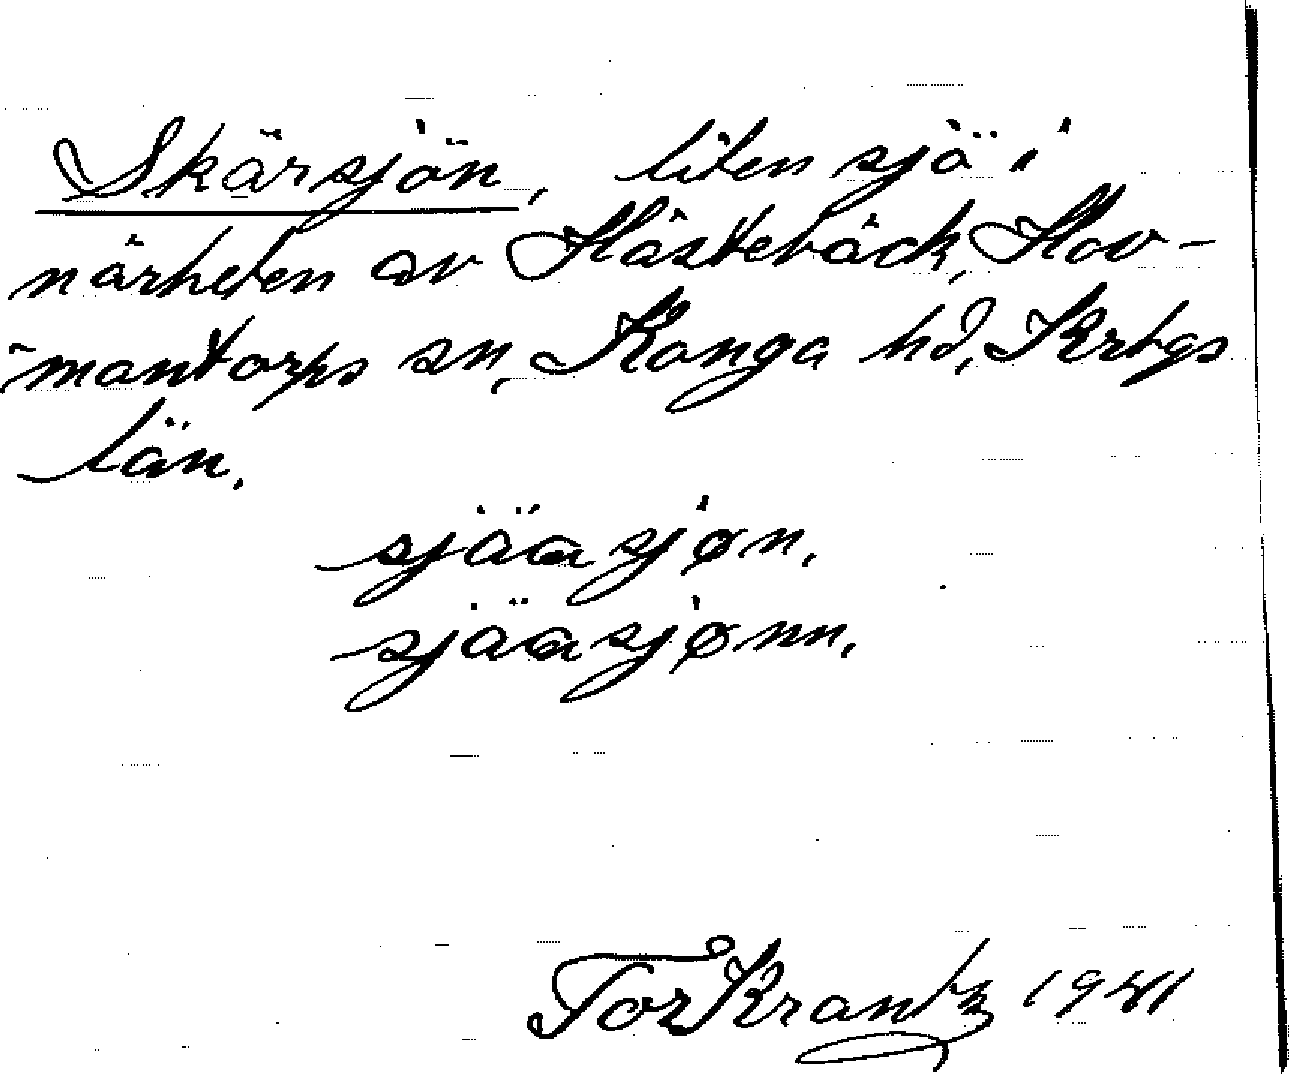 Skärsjön, liten sjö i
närheten av Hästebäck, Hov-
mantorps sn, Konga hd, Krbgs
län.
sjäasjøn.
sjäasjønn.
Tor Krantz 1941